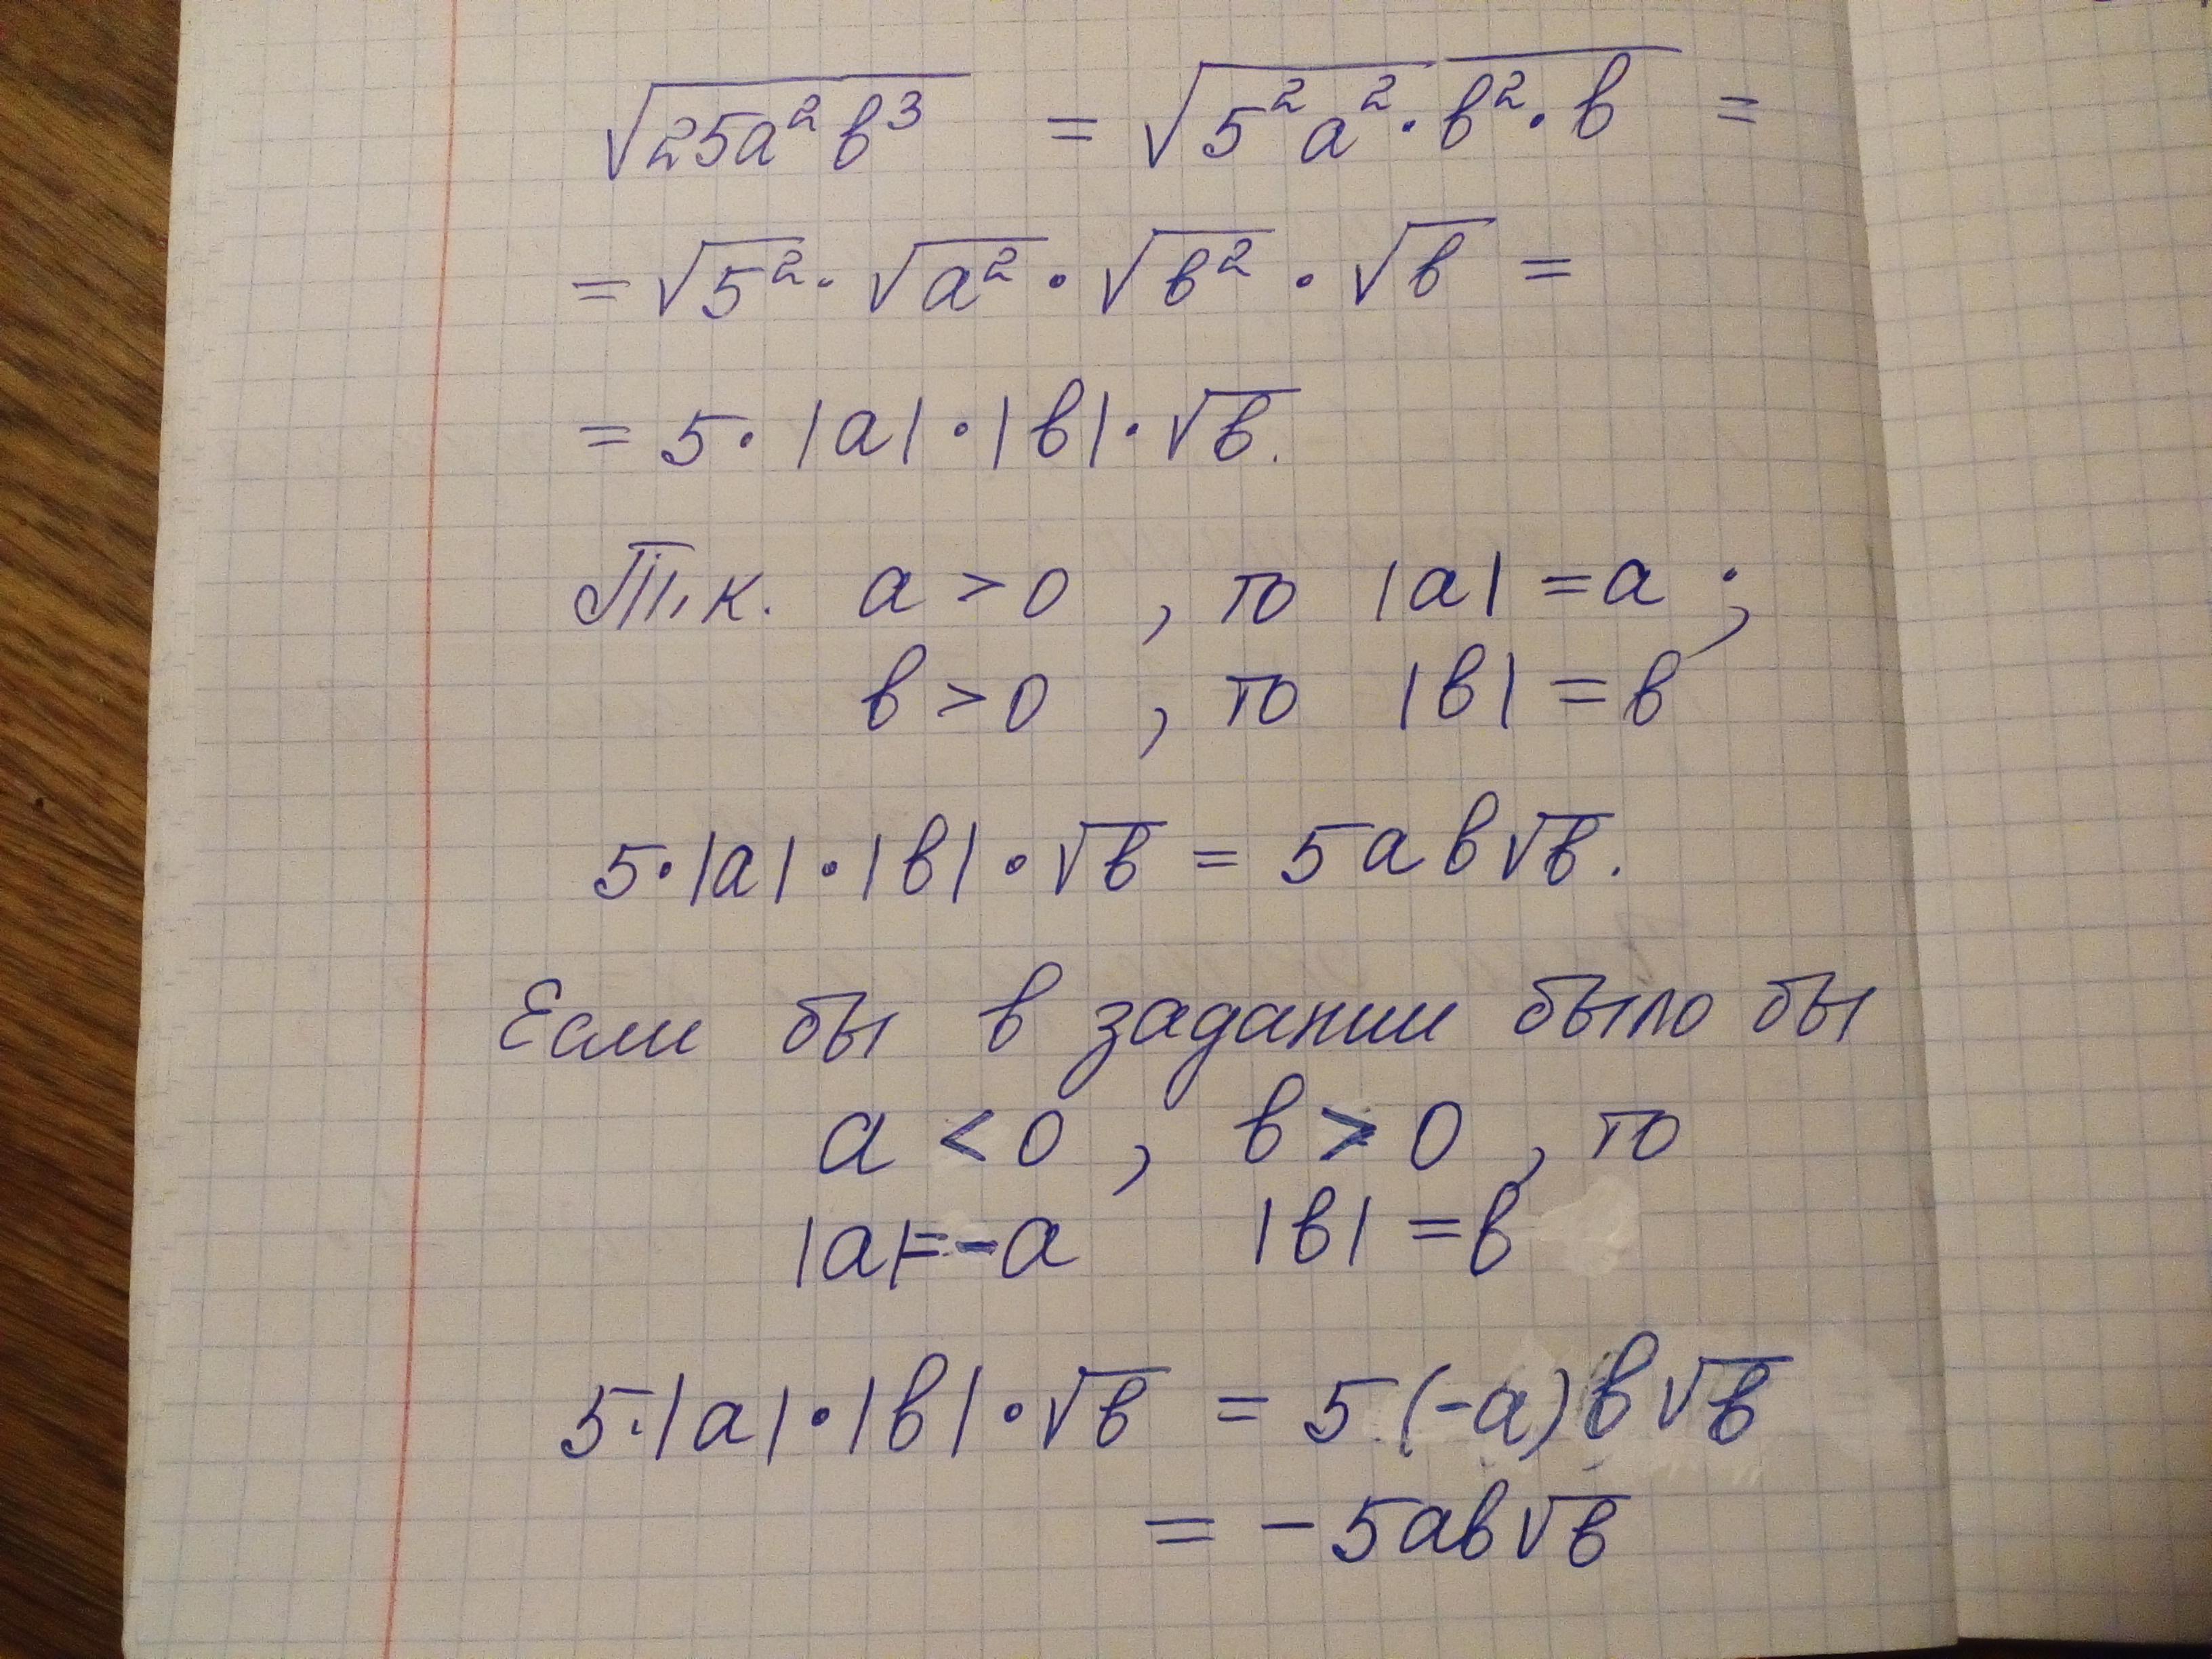 √25a²b³ = √5²a²·b²·b =
= √5² · √a² · √b² · √b =
= 5 · |a| · |b| · √b.
Т.к. a > 0 , то |a| = a ;
b > 0 , то |b| = b
5·|a|·|b|·√b = 5ab√b.
Если бы в задании было бы
a < 0 , b > 0 , то
|a|=-a |b| = b
5·|a|·|b|·√b = 5(-a)b√b
= -5ab√b